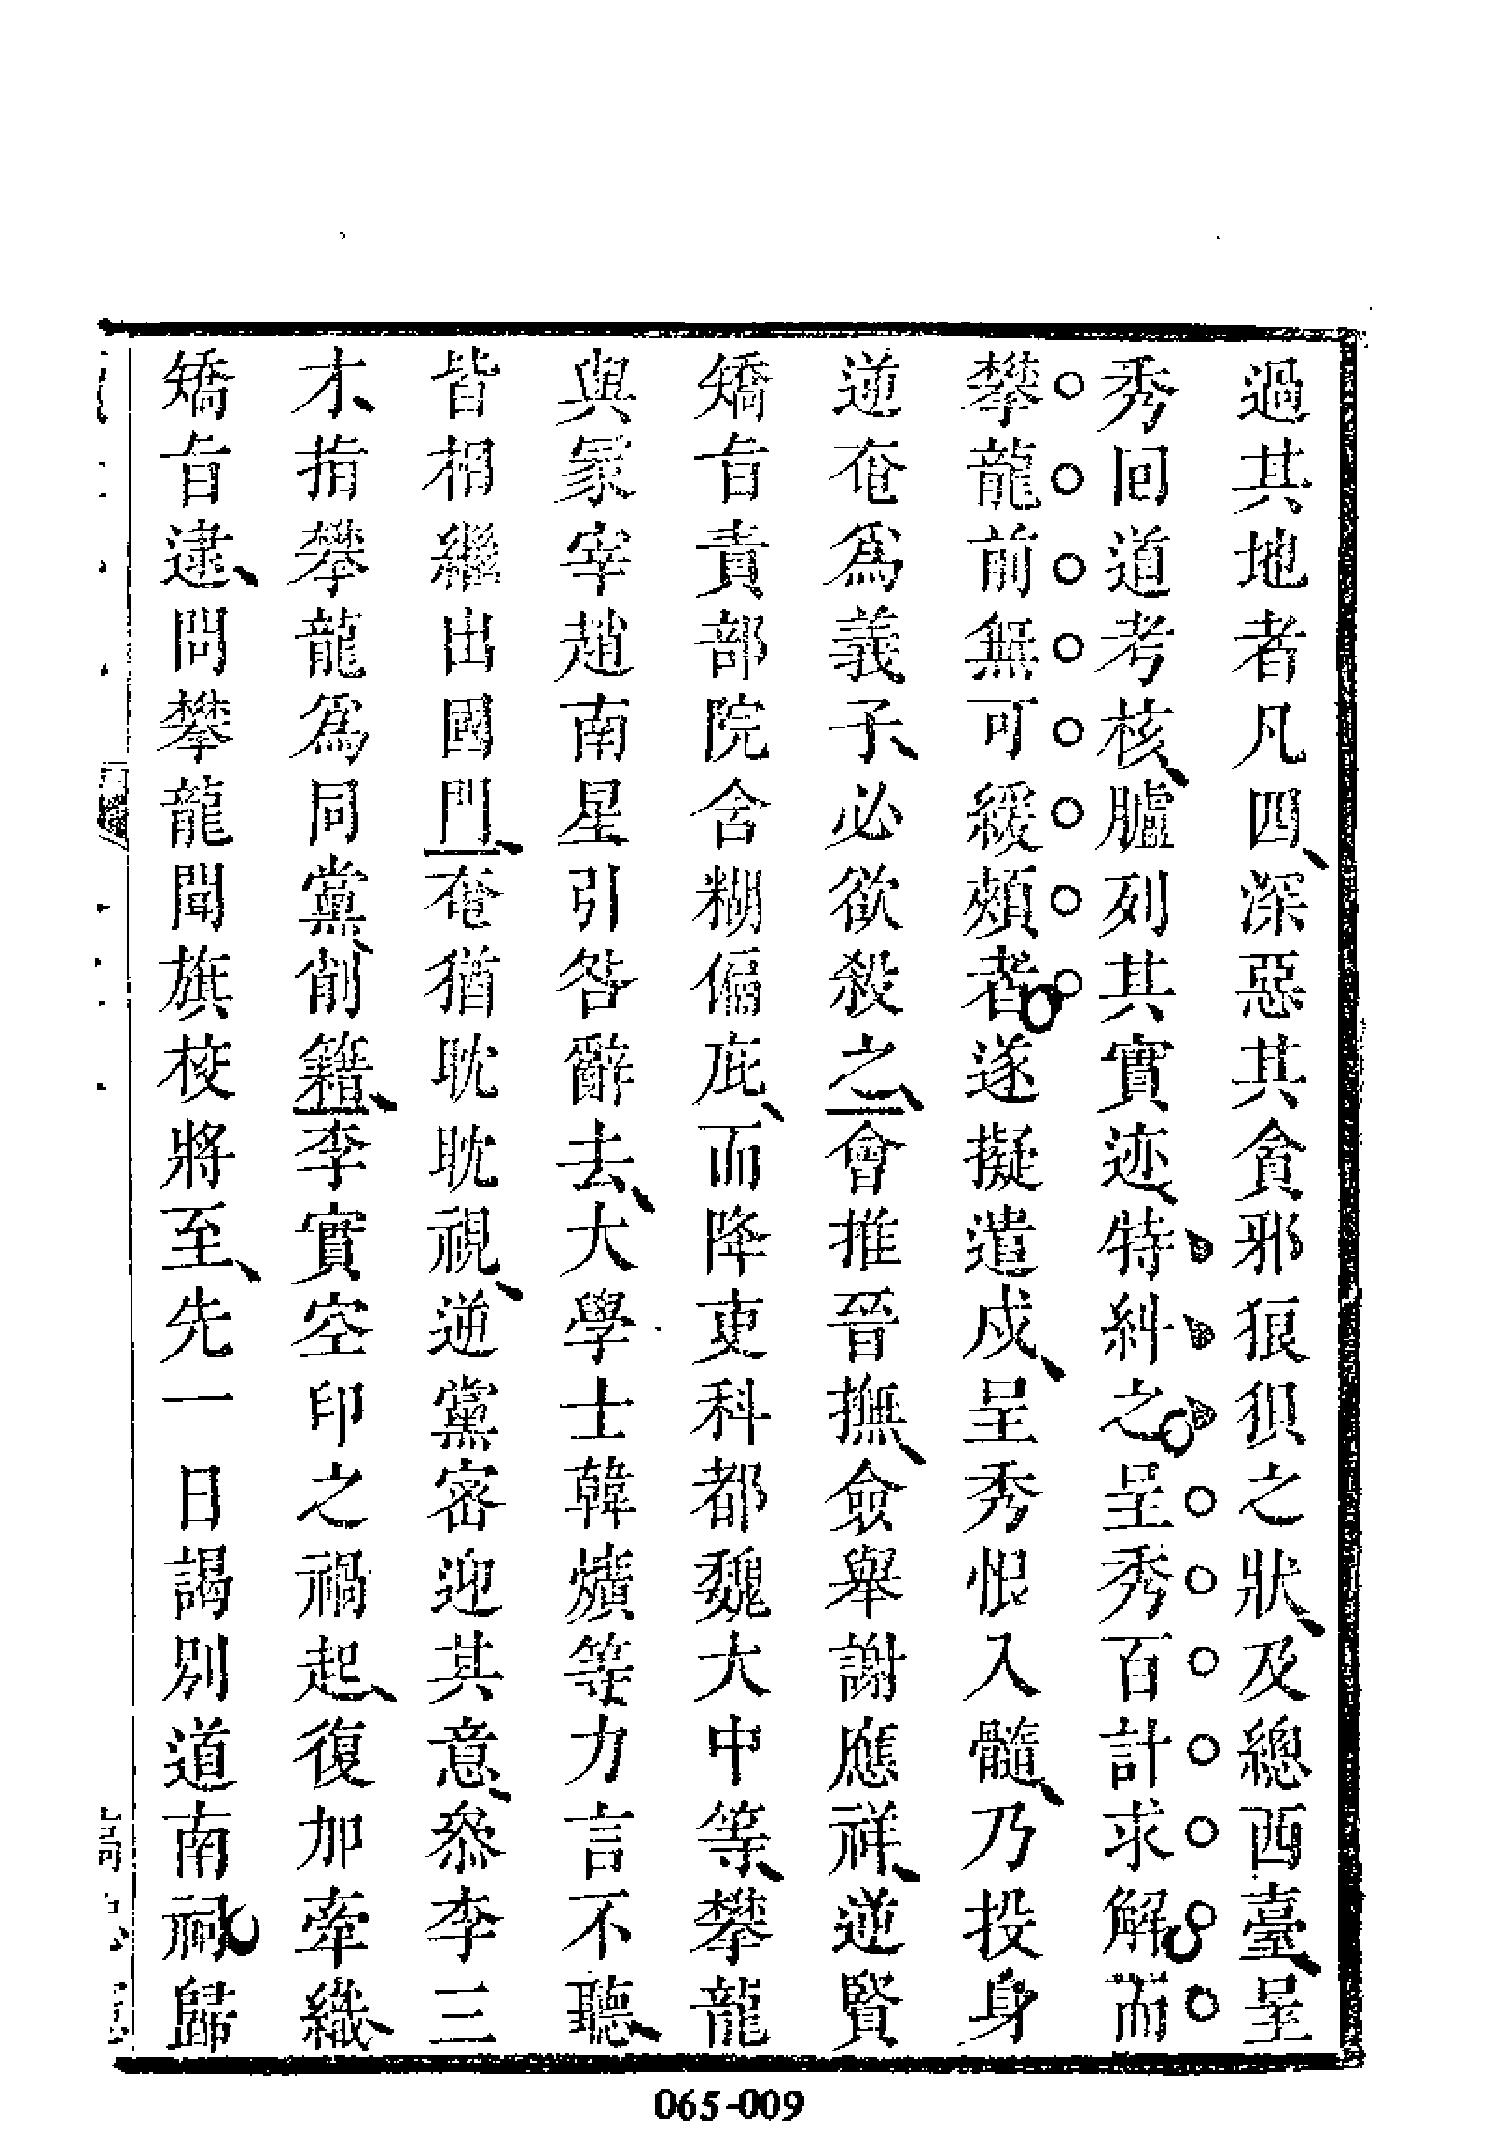 過其地者凡四深惡其貪邪狼狽之狀及總西臺呈
秀回道考核臚列其實迹特糾之呈秀百計求解而
攀龍前無可緩頰者遂擬遣戍呈秀恨入髓乃投身
逆奄爲義子必欲殺之會推晉撫僉舉謝應祥逆賢
矯旨責部院含糊偏庇而降吏科都魏大中等攀龍
與冢宰趙南星引咎辭去大學士韓爌等力言不聽
皆相繼出國門奄猶眈眈視逆黨密迎其意叅李三
才指攀龍爲同黨削籍李實空印之禍起復加牽織
矯旨逮問攀龍聞旗校將至先一日謁別道南祠歸
065-009